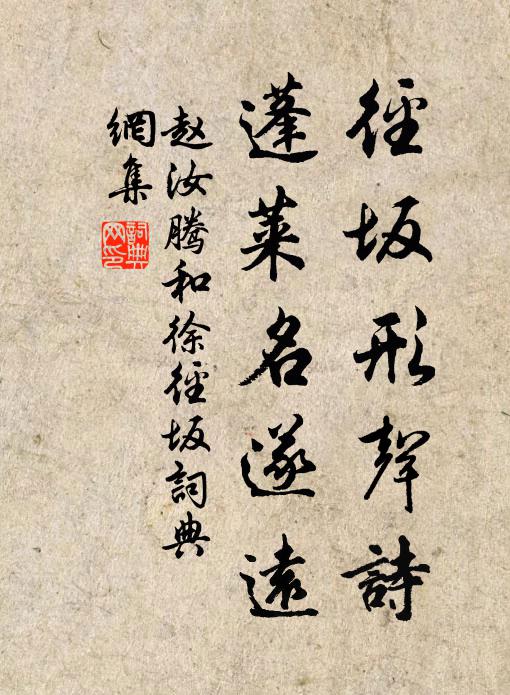 徑坂形聲詩
蓬萊名遂遠
赵汝腾和徐徑坂詞典
網集
詞典
网印